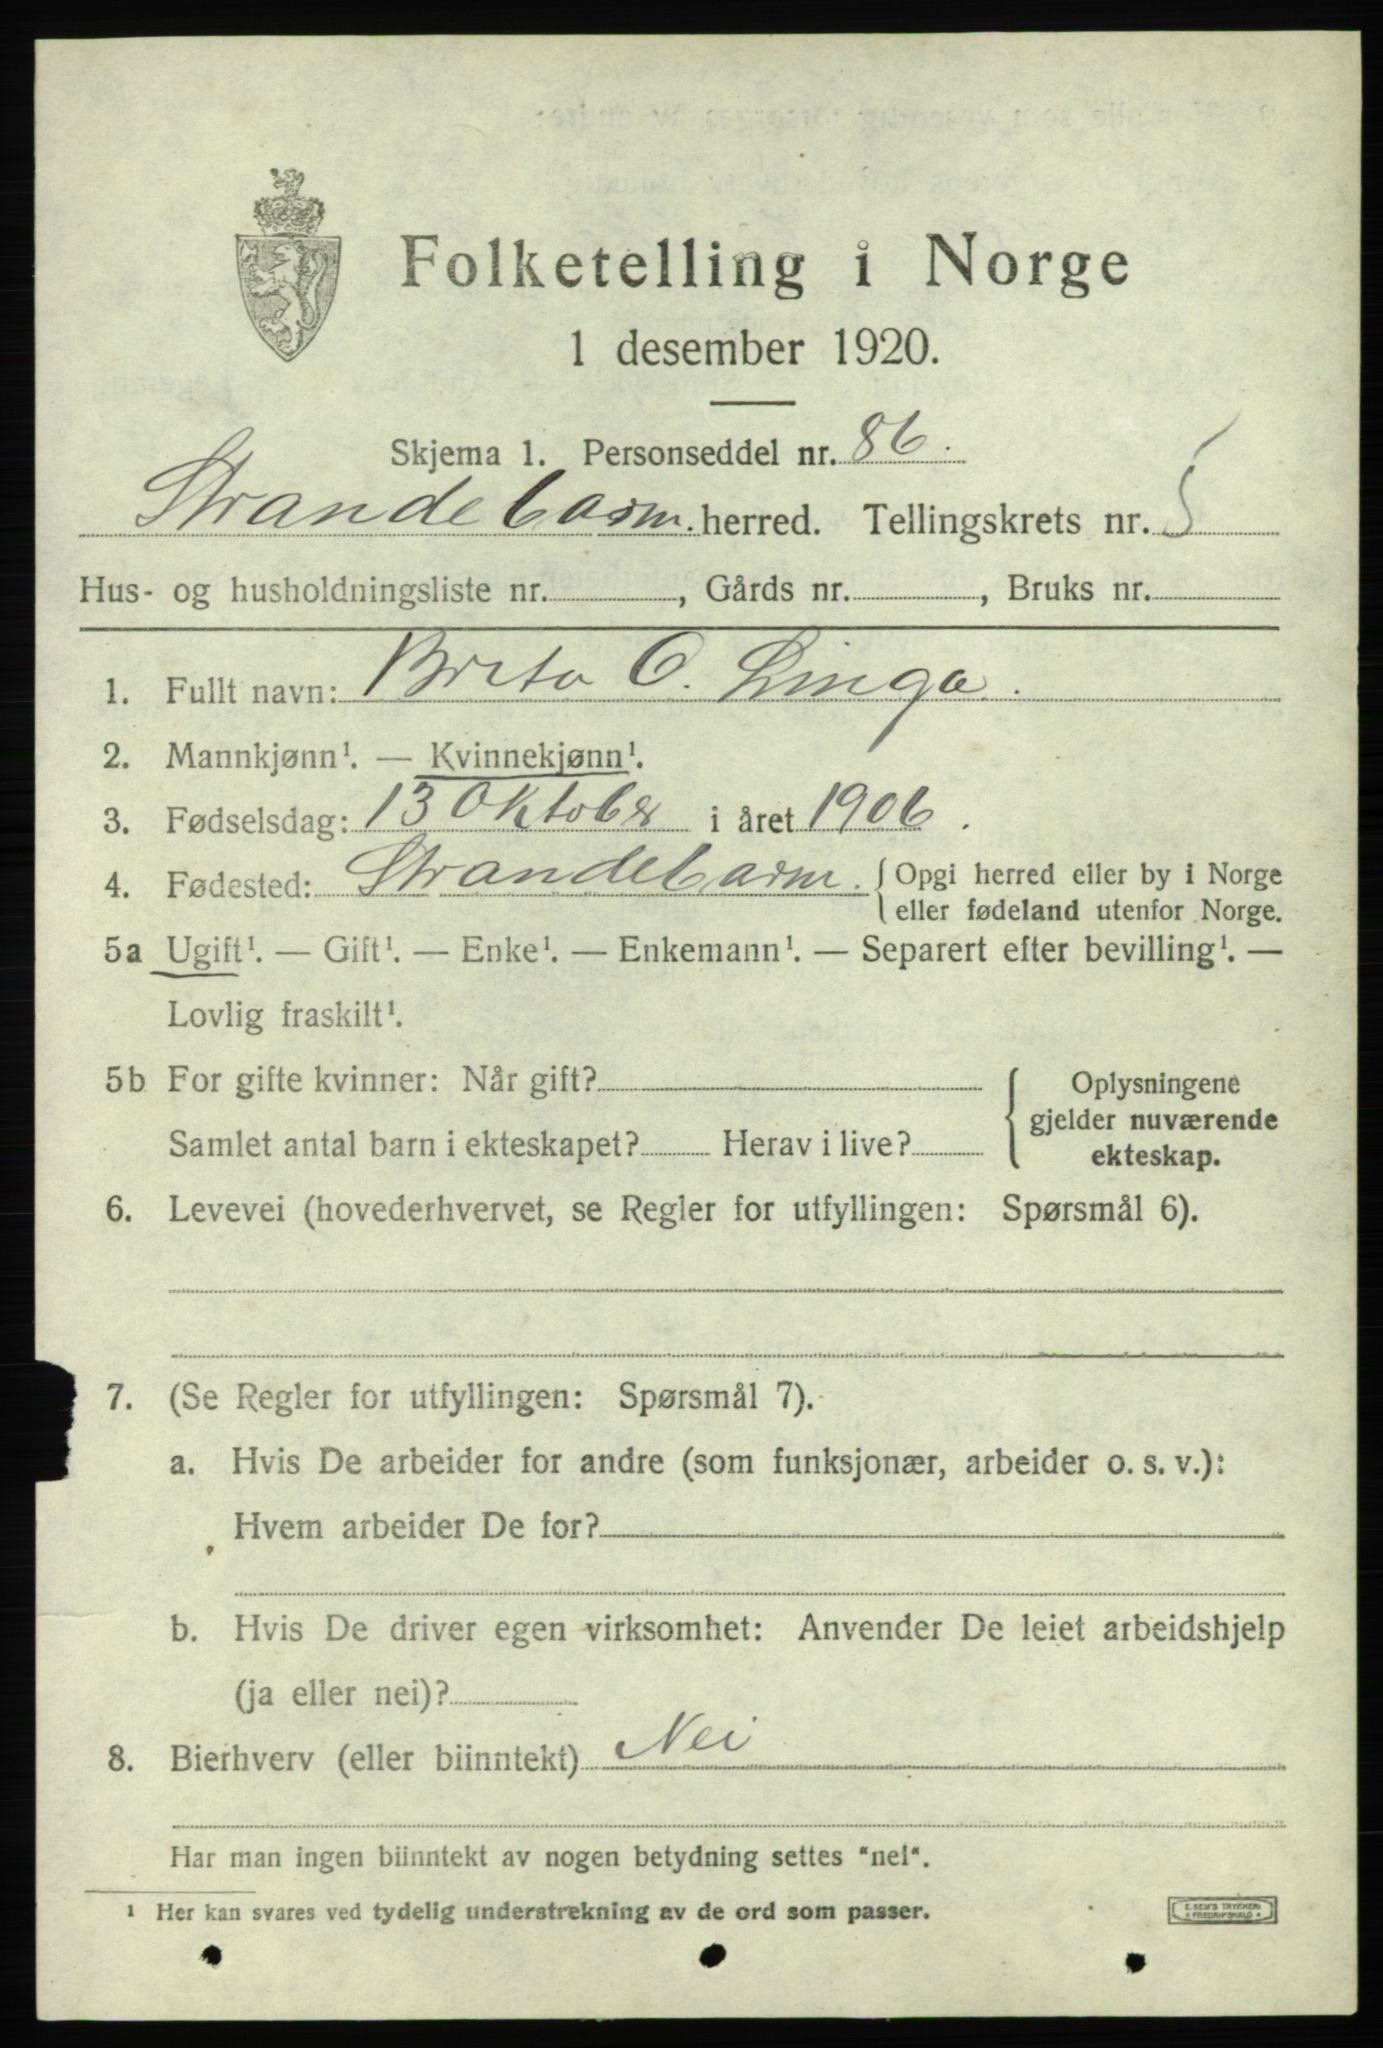 Folketelling i Norge
1 desember 1920.
Skjema 1. Personseddel nr. 86.
Strandebarm. herred. Tellingskrets nr. 5
Hus- og husholdningsliste nr. , Gårds nr. , Bruks nr.
1. Fullt navn: Brita O. Linga.
2. Mannkjønn¹. — Kvinnekjønn¹.
3. Fødselsdag: 13 Oktober i året 1906.
4. Fødested: Strandebarm. { Opgi herred eller by i Norge
eller fødeland utenfor Norge.
5a Ugift¹. — Gift¹. — Enke¹. — Enkemann¹. — Separert efter bevilling¹. —
Lovlig fraskilt¹.
5b For gifte kvinner: Når gift? { Oplysningene
gjelder nuværende
Samlet antal barn i ekteskapet? Herav i live? ekteskap.
6. Levevei (hovederhvervet, se Regler for utfyllingen: Spørsmål 6).
7. (Se Regler for utfyllingen: Spørsmål 7).
a. Hvis De arbeider for andre (som funksjonær, arbeider o. s. v.):
Hvem arbeider De for?
b. Hvis De driver egen virksomhet: Anvender De leiet arbeidshjelp
(ja eller nei)?
8. Bierhverv (eller biinntekt) Nei
Har man ingen biinntekt av nogen betydning settes "nei".
¹ Her kan svares ved tydelig understrekning av de ord som passer.
E. SEM'S TRYKKERI
FREDRIKSHALD